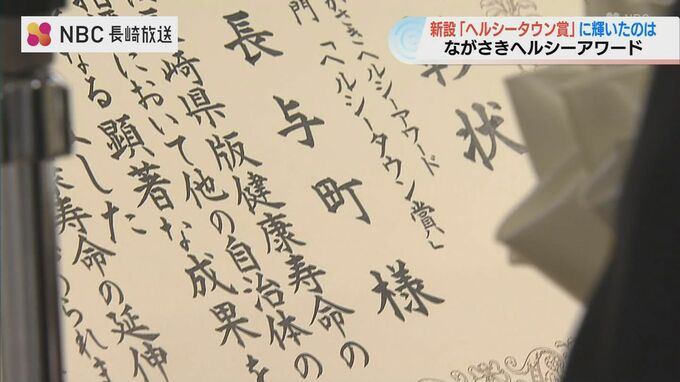 NBC 長崎放送
新設「ヘルシータウン賞」に輝いたのは
ながさきヘルシーアワード
NBC
状
がさきヘルシーアワード
門「ヘルシータウン賞」
長与町様
崎県版健康寿命の
において他の自治体の
顕著な成果を
した
寿命の延伸
られま